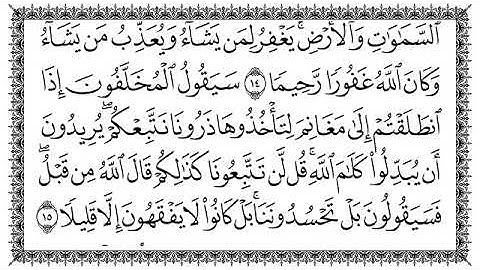 ٱلسَّمَٰوَٰتِ وَٱلْأَرْضِ ۚ يَغْفِرُ لِمَن يَشَآءُ وَيُعَذِّبُ مَن يَشَآءُ ۚ
وَكَانَ ٱللَّهُ غَفُورًا رَّحِيمًا ١٤ سَيَقُولُ ٱلْمُخَلَّفُونَ إِذَا
ٱنطَلَقْتُمْ إِلَىٰ مَغَانِمَ لِتَأْخُذُوهَا ذَرُونَا نَتَّبِعْكُمْ ۖ يُرِيدُونَ
أَن يُبَدِّلُوا۟ كَلَٰمَ ٱللَّهِ ۚ قُل لَّن تَتَّبِعُونَا كَذَٰلِكُمْ قَالَ ٱللَّهُ مِن قَبْلُ ۖ
فَسَيَقُولُونَ بَلْ تَحْسُدُونَنَا ۚ بَلْ كَانُوا۟ لَا يَفْقَهُونَ إِلَّا قَلِيلًا ١٥